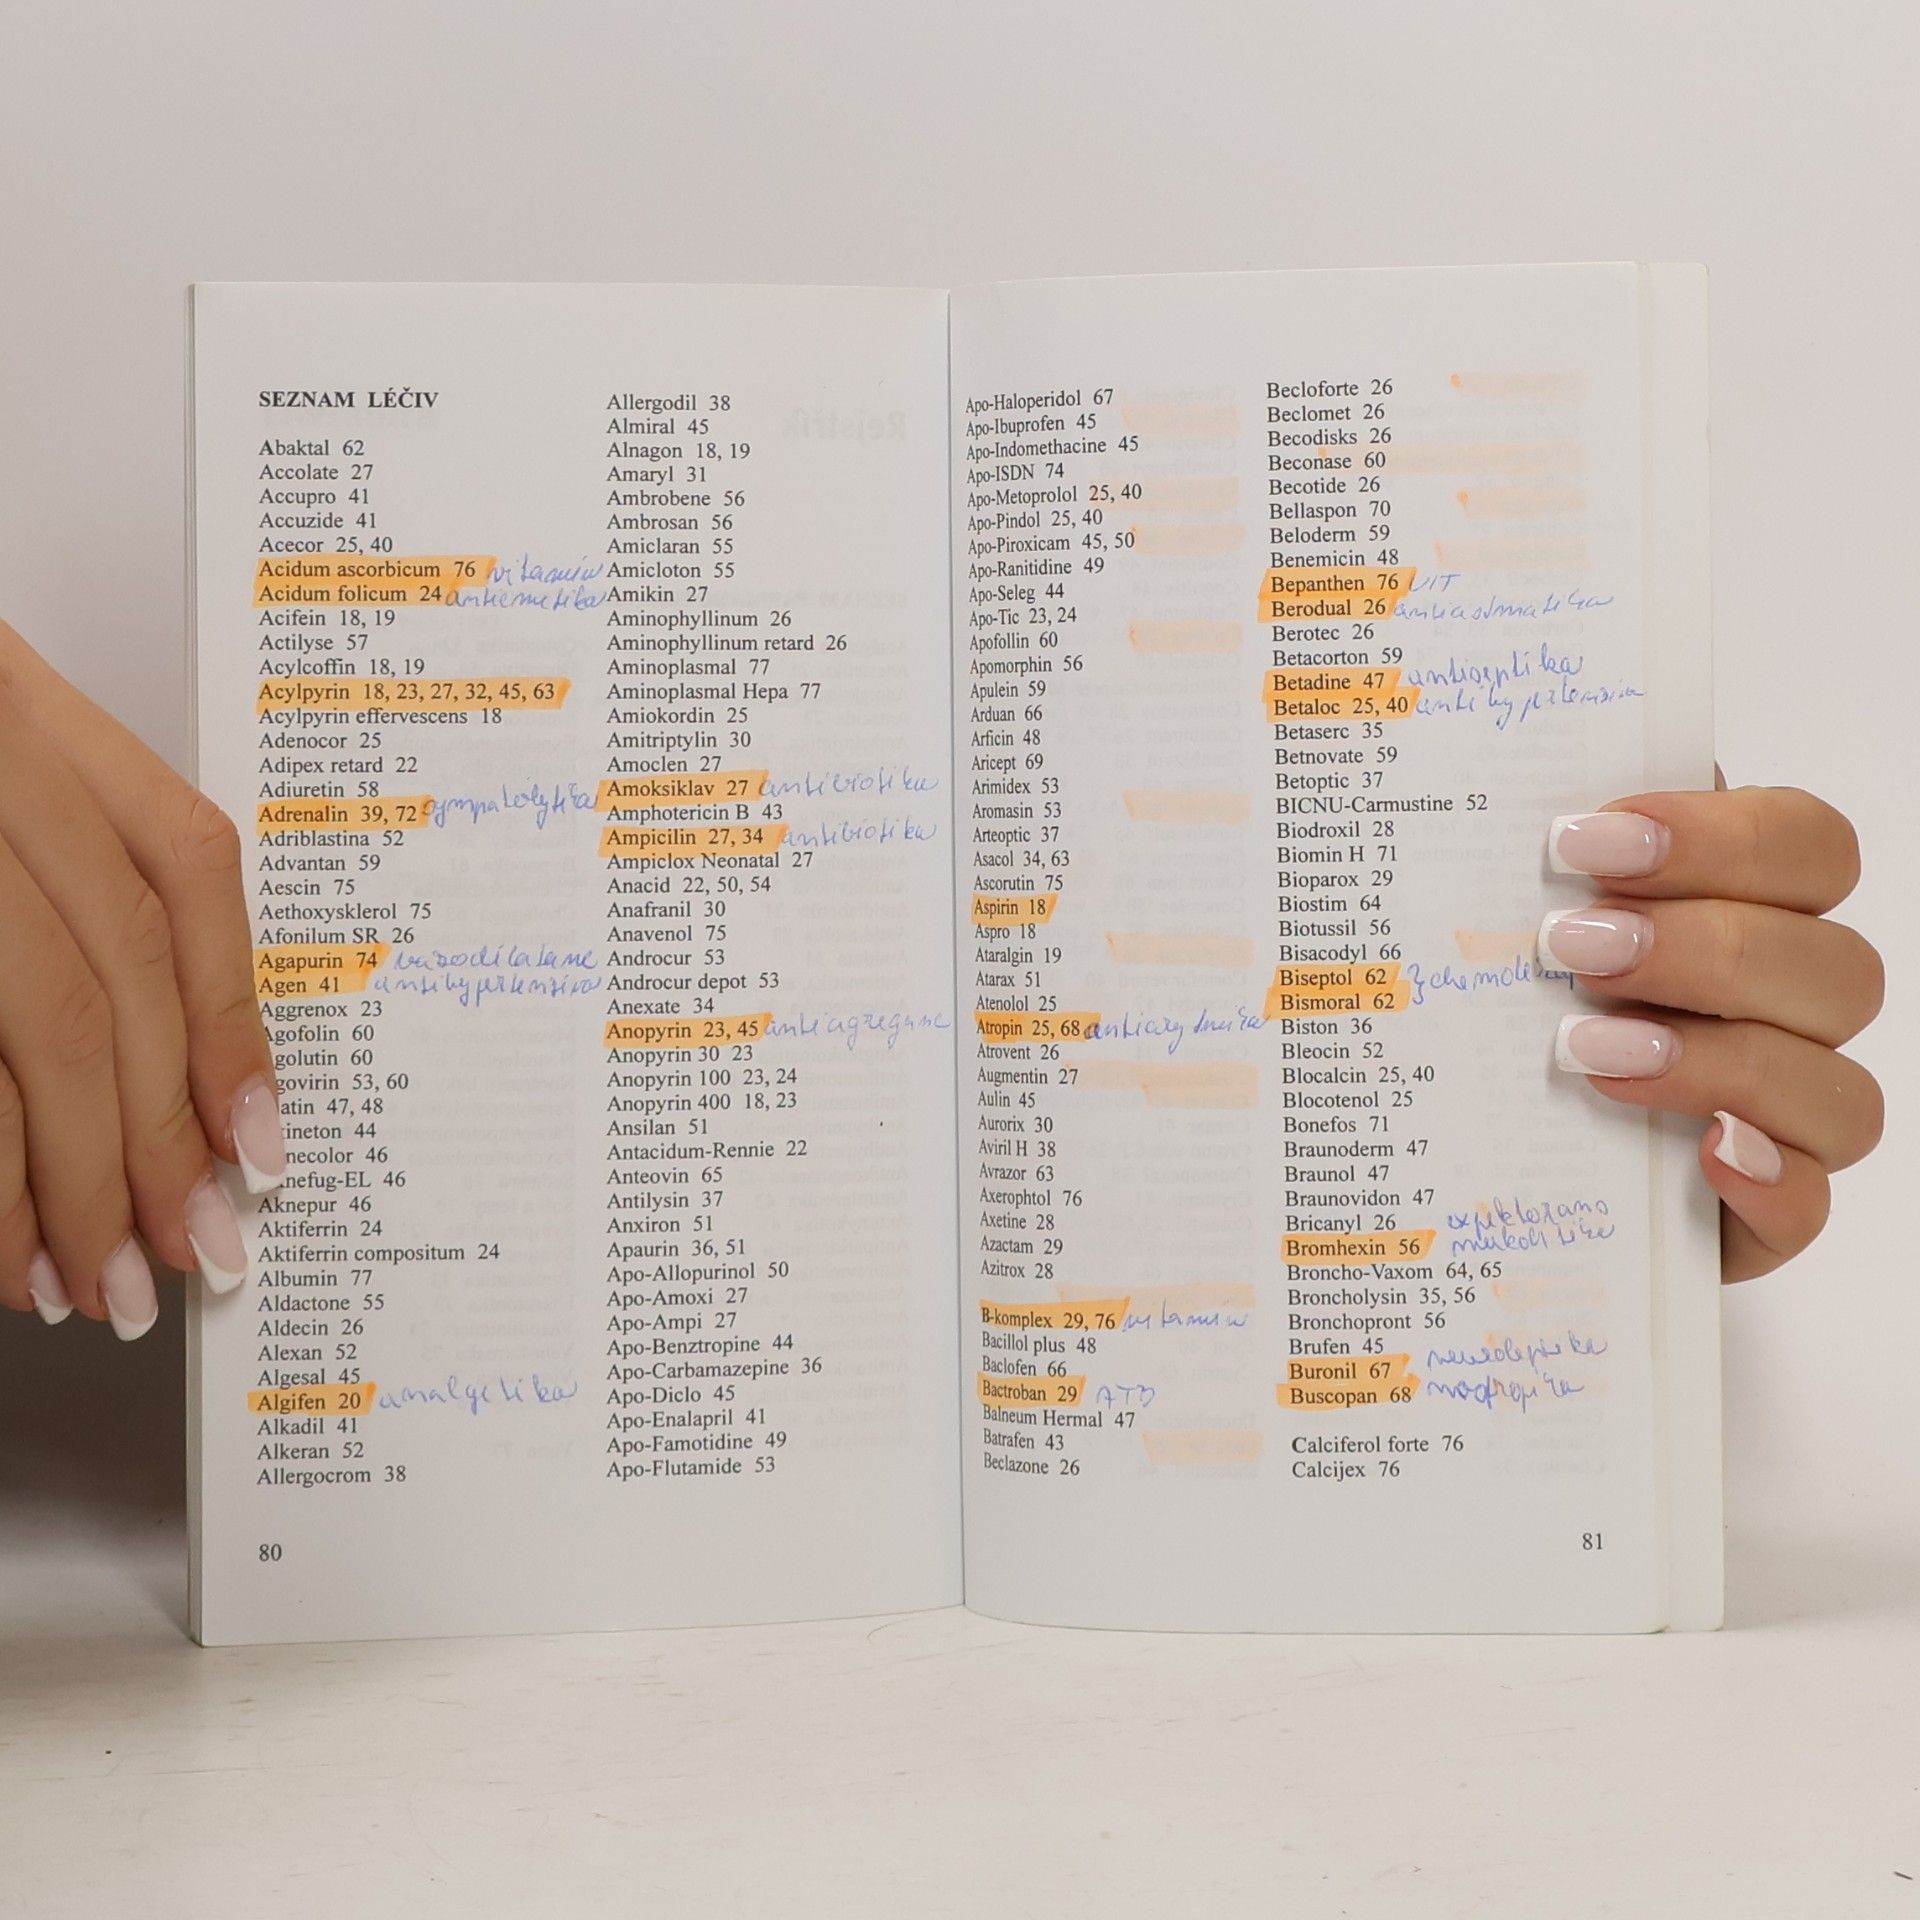 SEZNAM LÉČIV
Abaktal 62
Accolate 27
Accupro 41
Accuzide 41
Acecor 25, 40
Acidum ascorbicum 76 vitamin
Acidum folicum 24 antiemetika
Acifein 18, 19
Actilyse 57
Acylcoffin 18, 19
Acylpyrin 18, 23, 27, 32, 45, 63
Acylpyrin effervescens 18
Adenocor 25
Adipex retard 22
Adiuretin 58
Adrenalin 39, 72
Adriblastina 52
Advantan 59
Aescin 75
Aethoxysklerol 75
Afonilum SR 26
Agapurin 74
Agen 41 antihypertenziva
Aggrenox 23
gofolin 60
golutin 60
govirin 53, 60
atin 47, 48
ineton 44
necolor 46
nefug-EL 46
Aknepur 46
Aktiferrin 24
Aktiferrin compositum 24
Albumin 77
Aldactone 55
Aldecin 26
Alexan 52
Algesal 45
Algifen 20 analgetika
Alkadil 41
Alkeran 52
Allergocrom 38
Allergodil 38
Almiral 45
Alnagon 18, 19
Amaryl 31
Ambrobene 56
Ambrosan 56
Amiclaran 55
Amicloton 55
Amikin 27
Aminophyllinum 26
Aminophyllinum retard 26
Aminoplasmal 77
Aminoplasmal Hepa 77
Amiokordin 25
Amitriptylin 30
Amoclen 27
Amoksiklav 27 antibiotika
Amphotericin B 43
Ampicilin 27, 34 antibiotika
Ampiclox Neonatal 27
Anacid 22, 50, 54
Anafranil 30
Anavenol 75
Androcur 53
Androcur depot 53
Anexate 34
Anopyrin 23, 45
Anopyrin 30 23
Anopyrin 100 23, 24
Anopyrin 400 18, 23
Ansilan 51
Antacidum-Rennie 22
Anteovin 65
Antilysin 37
Anxiron 51
Apaurin 36, 51
Apo-Allopurinol 50
Apo-Amoxi 27
Apo-Ampi 27
Apo-Benztropine 44
Apo-Carbamazepine 36
Apo-Diclo 45
Apo-Enalapril 41
Apo-Famotidine 49
Apo-Flutamide 53
80
Apo-Haloperidol 67
Apo-Ibuprofen 45
Apo-Indomethacine 45
Apo-ISDN 74
Apo-Metoprolol 25, 40
Apo-Pindol 25, 40
Apo-Piroxicam 45, 50
Apo-Ranitidine 49
Apo-Seleg 44
Apo-Tic 23, 24
Apofollin 60
Apomorphin 56
Apulein 59
Arduan 66
Arficin 48
Aricept 69
Arimidex 53
Aromasin 53
Arteoptic 37
Asacol 34, 63
Ascorutin 75
Aspirin 18
Aspro 18
Ataralgin 19
Atarax 51
Atenolol 25
Atropin 25, 68
Atrovent 26
Augmentin 27
Aulin 45
Aurorix 30
Aviril H 38
Avrazor 63
Axerophtol 76
Axetine 28
Azactam 29
Azitrox 28
B-komplex 29, 76 vitamin
Bacillol plus 48
Baclofen 66
Bactroban 29 ATB
Balneum Hermal 47
Batrafen 43
Beclazone 26
Becloforte 26
Beclomet 26
Becodisks 26
Beconase 60
Becotide 26
Bellaspon 70
Beloderm 59
Benemicin 48
Bepanthen 76 VIT
Berodual 26 antiastmatika
Berotec 26
Betacorton 59
Betadine 47 antiseptika
Betaloc 25, 40 antihypertenziva
Betaserc 35
Betnovate 59
Betoptic 37
BICNU-Carmustine 52
Biodroxil 28
Biomin H 71
Bioparox 29
Biostim 64
Biotussil 56
Bisacodyl 66
Biseptol 62
Bismoral 62
Biston 36
Bleocin 52
Blocalcin 25, 40
Blocotenol 25
Bonefos 71
Braunoderm 47
Braunol 47
Braunovidon 47
Bricanyl 26
Bromhexin 56
Broncho-Vaxom 64, 65
Broncholysin 35, 56
Bronchopront 56
Brufen 45
Buronil 67 neuroleptika
Buscopan 68
Calciferol forte 76
Calcijex 76
81